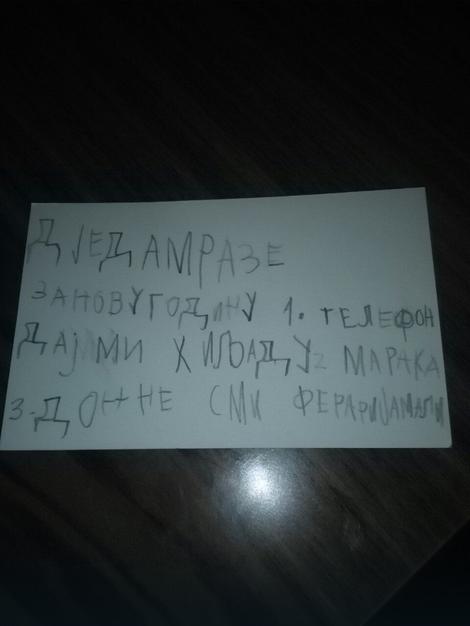 ДЈЕДАМРАЗЕ
ЗАНОВУГОДИНУ 1. ТЕЛЕФОН
ДАЈМИ ХИЉАДУ2 МАРАКА
3-ДОННЕ СМИ ФЕРАРИЈАМАЛИ